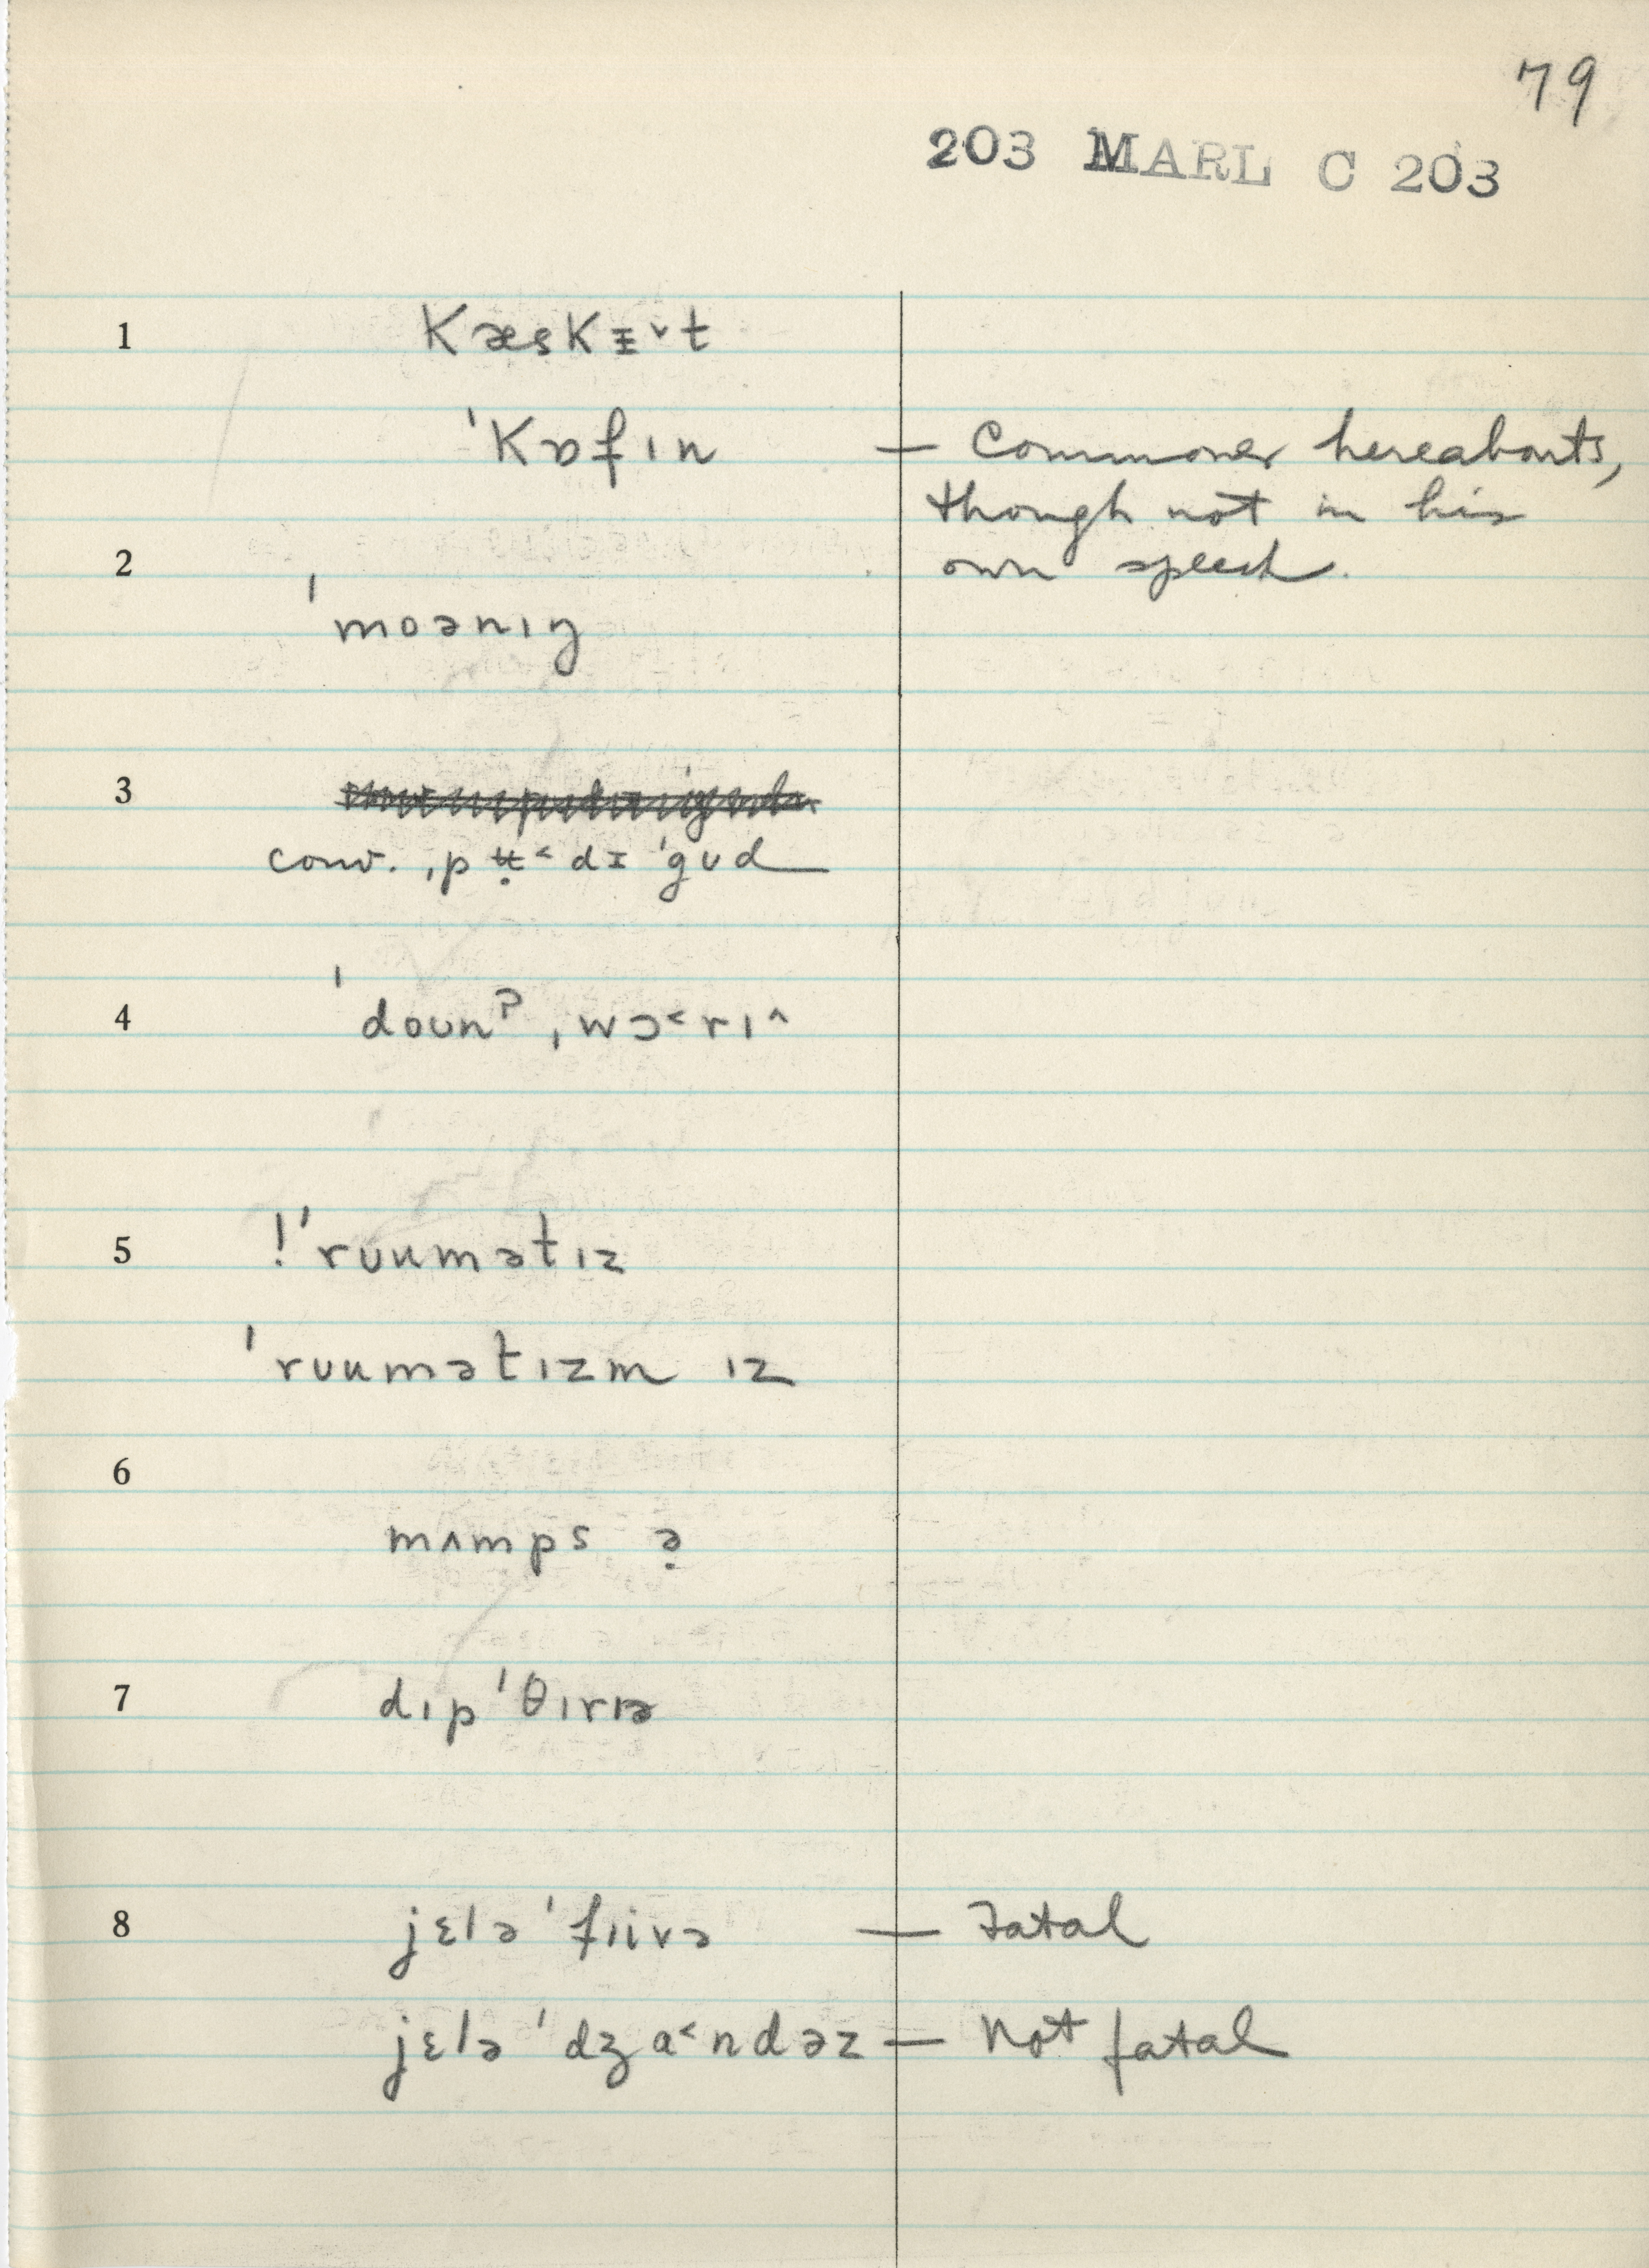 79
203 MARL C 203
1 kæskɪ̵˅t
ˈkɒfɪn — Commoner hereabouts,
though not in his
2 own speech.
ˈmoənɪŋ
3
conv. ˌpʉ̣˂dɪ ˈgʊd
4 ˈdoʊnˀ ˌwɔ˂rɪ˄
5 !ˈrʊumətɪz
ˈrʊumətɪzm ɪz
6
mʌmps ə̣
7 dɪpˈθɪrɪɚ
8 jɛlə ˈfɪivə — Fatal
jɛlə ˈdʒa˂ndəz — Not fatal